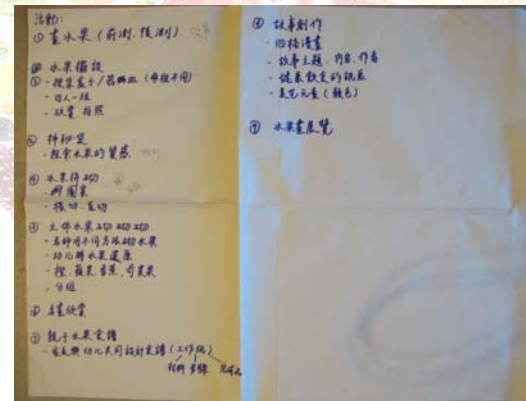 活動:
① 畫水果(前測.後測)
② 水果擺設
- 搜集盒子/器皿(每組不同)
- 四人一組
- 欣賞 拍照
③ 神秘袋
- 探索水果的質感
④ 水果拼砌
- 橫切、直切
⑤ 立体水果砌砌砌
- 老師用不同方法切水果
- 幼兒將水果還原
- 橙、蘋果、香蕉、奇異果
- 分組
⑥ 名畫欣賞
⑦ 親子水果食譜
- 家長與幼兒共同設計食譜(工作紙)
材料 步驟 完成品
⑧ 故事創作
- 四格漫畫
- 故事主題、內容、作者
- 健康飲食的訊息
- 美艺元素(顏色)
⑨ 水果畫展覽